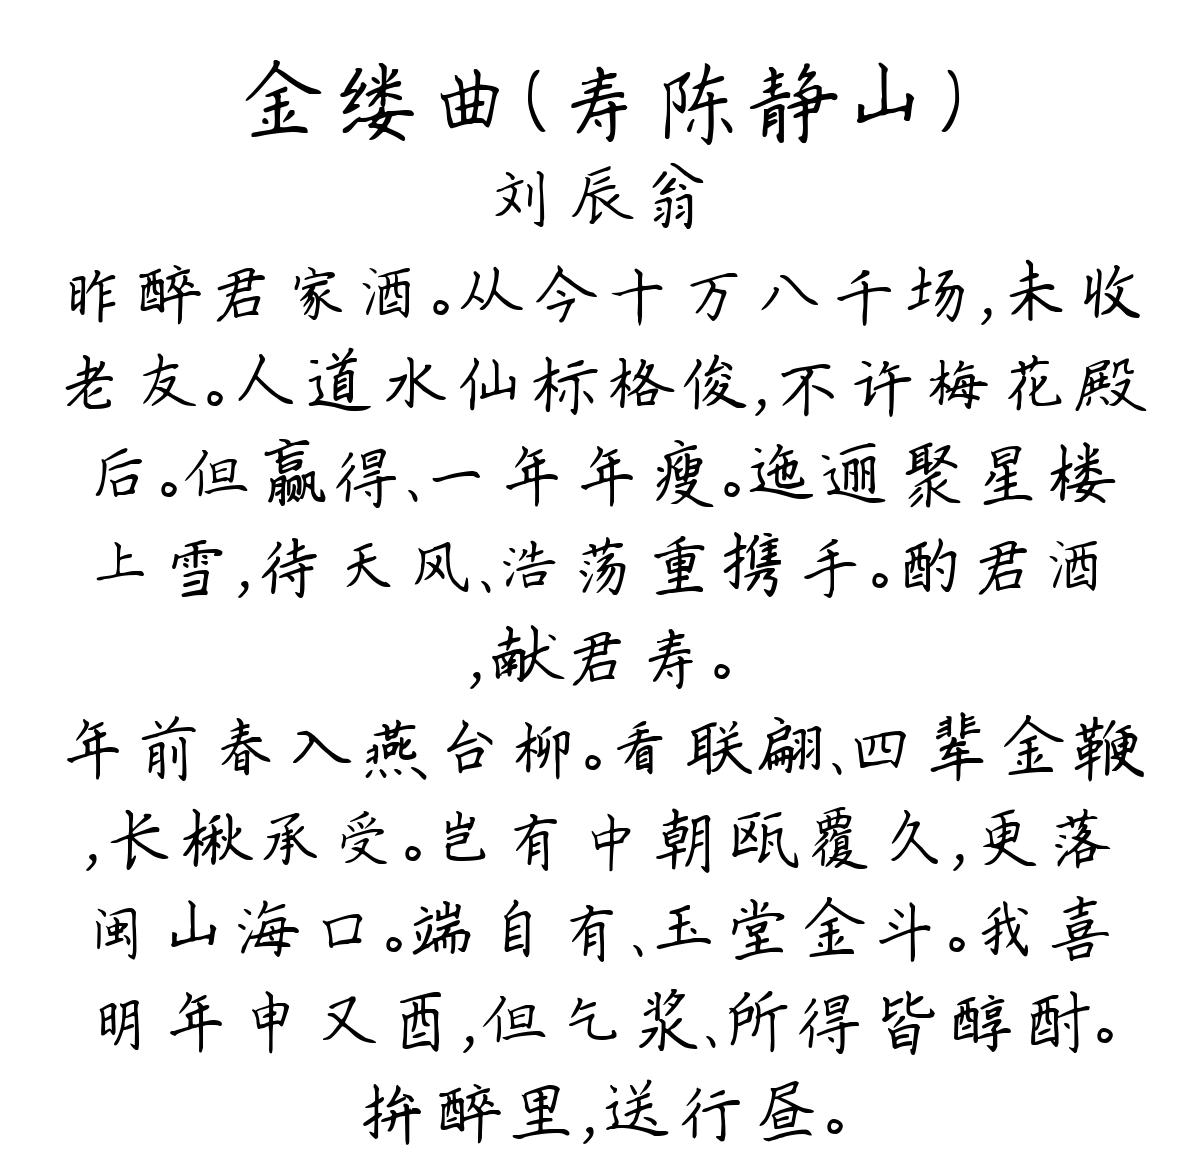 金缕曲(寿陈静山)
刘辰翁
昨醉君家酒。从今十万八千场,未收
老友。人道水仙标格俊,不许梅花殿
后。但赢得、一年年瘦。迤逦聚星楼
上雪,待天风、浩荡重携手。酌君酒
,献君寿。
年前春入燕台柳。看联翩、四辈金鞭
,长楸承受。岂有中朝瓯覆久,更落
闽山海口。端自有、玉堂金斗。我喜
明年申又酉,但乞浆、所得皆醇酎。
拚醉里,送行昼。